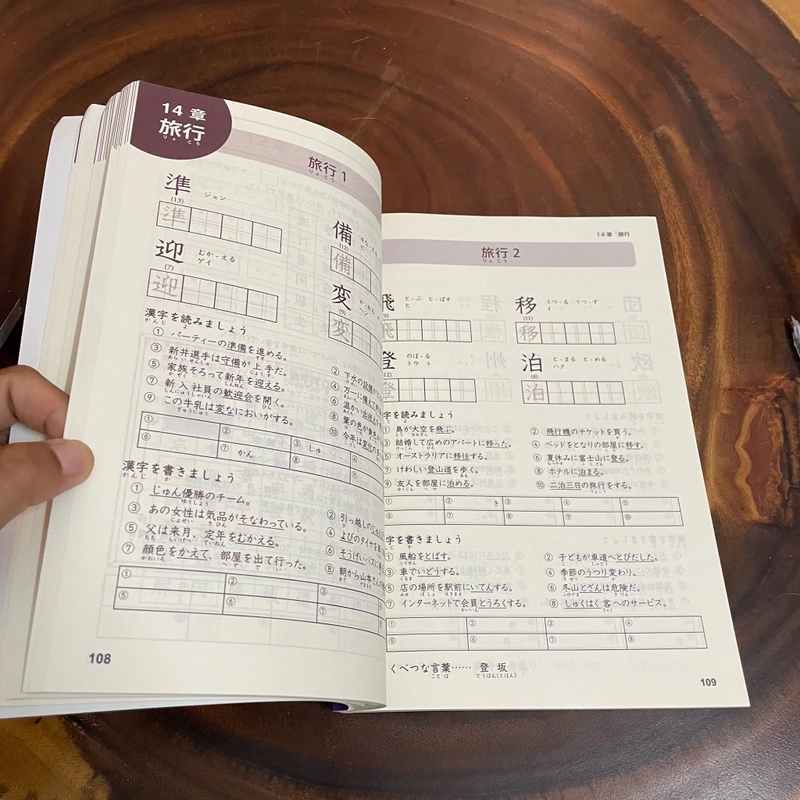 14章
旅行
りょこう
旅行1
りょこう
準
ジュン
(13)
準
迎
むか-える
ゲイ
(7)
迎
備
(12)
備
変
(9)
変
漢字を読みましょう
かんじ よ
① パーティーの準備を進める。
③ 新井選手は守備が上手だ。
⑤ 家族そろって新年を迎える。
⑦ 新入社員の歓迎会を開く。
⑨ この牛乳は変なにおいがする。
② 下水の設備が
④ 万一に備えて
⑥ 温かい
⑧ 葉の色が
⑩ 今年は変化の
①
⑥
②
⑦ かん
③ しゅ
⑧
漢字を書きましょう
かんじ か
① じゅん優勝のチーム。
③ あの女性は気品がそなわっている。
⑤ 父は来月、定年をむかえる。
⑦ 顔色をかえて、部屋を出て行った。
② 引っ越しの
④ よびのタイヤを
⑥ そうげいバスに
⑧ 朝から山本さんの
①
②
③
⑤
⑥
⑦
108
14章 旅行
旅行2
りょこう
飛
と-ぶ と-ばす
ヒ
(9)
飛
移
うつ-る うつ-す
イ
(11)
移
登
のぼ-る
トウ ト
(12)
登
泊
と-まる と-める
ハク
(8)
泊
字を読みましょう
① 鳥が大空を飛ぶ。
③ 結婚して広めのアパートに移った。
⑤ オーストラリアに移住する。
⑦ けわしい登山道を歩く。
⑨ 友人を部屋に泊める。
② 飛行機のチケットを買う。
④ ベッドをとなりの部屋に移す。
⑥ 夏休みに富士山に登る。
⑧ ホテルに泊まる。
⑩ 二泊三日の旅行をする。
①
② き
③
④
⑤
⑥
⑦
⑧
⑨
⑩
字を書きましょう
① 風船をとばす。
③ 車でいどうする。
⑤ 店の場所を駅前にいてんする。
⑦ インターネットで会員とうろくする。
② 子どもが車道へとびだした。
④ 季節のうつり変わり。
⑥ 冬山とざんは危険だ。
⑧ しゅくはく客へのサービス。
①
②
③
④
⑤
⑥
⑦
⑧
くべつな言葉…… 登坂
ことば とうはん(とはん)
109